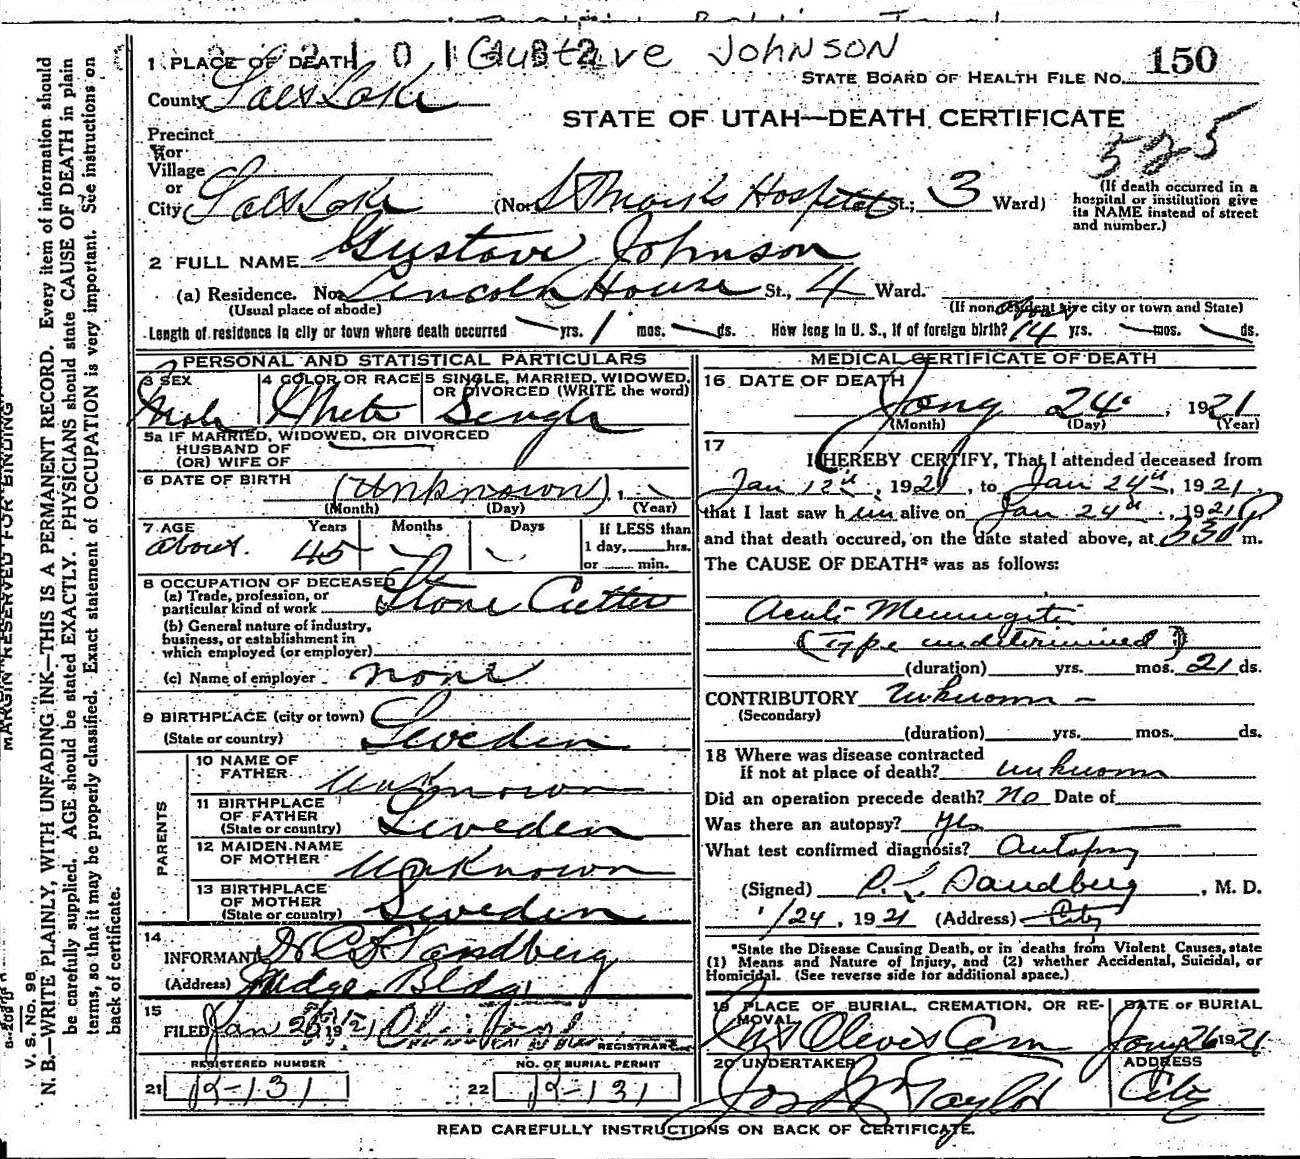 Gustave JOHNSON
1 PLACE OF DEATH
STATE BOARD OF HEALTH FILE NO. 150
County Salt Lake
STATE OF UTAH—DEATH CERTIFICATE
525
Precinct
or
Village
or
City Salt Lake (No. St Mark's Hospital St.; 3 Ward)
(If death occurred in a
hospital or institution give
its NAME instead of street
and number.)
2 FULL NAME Gustave Johnson
(a) Residence. No. Lincoln House St., 4 Ward.
(Usual place of abode)
(If non resident give city or town and State)
Length of residence in city or town where death occurred — yrs. 1 mos. — ds. How long in U. S., if of foreign birth? 14 yrs. — mos. — ds.
PERSONAL AND STATISTICAL PARTICULARS
3 SEX
Male
4 COLOR OR RACE
White
5 SINGLE, MARRIED, WIDOWED,
OR DIVORCED (WRITE the word)
Single
5a IF MARRIED, WIDOWED, OR DIVORCED
HUSBAND OF
(OR) WIFE OF
6 DATE OF BIRTH (Unknown), 1
(Month) (Day) (Year)
7 AGE Years Months Days
about 45 — —
If LESS than
1 day, hrs.
or min.
8 OCCUPATION OF DECEASED
(a) Trade, profession, or
particular kind of work Stone Cutter
(b) General nature of industry,
business, or establishment in
which employed (or employer)
(c) Name of employer none
9 BIRTHPLACE (city or town)
(State or country) Sweden
PARENTS
10 NAME OF
FATHER Unknown
11 BIRTHPLACE
OF FATHER
(State or country) Sweden
12 MAIDEN NAME
OF MOTHER Unknown
13 BIRTHPLACE
OF MOTHER
(State or country) Sweden
14
INFORMANT Sandberg
(Address) Judge Bldg
15
FILED Jan 26 1921
REGISTRAR
REGISTERED NUMBER
21 R-131
NO. OF BURIAL PERMIT
22 R-131
MEDICAL CERTIFICATE OF DEATH
16 DATE OF DEATH
Jany 24, 1921
(Month) (Day) (Year)
17
I HEREBY CERTIFY, That I attended deceased from
Jan 12th, 1921, to Jan 24th, 1921,
that I last saw h im alive on Jan 24th, 1921
and that death occured, on the date stated above, at 330 P m.
The CAUSE OF DEATH* was as follows:
Acute Meningitis
(Type undetermined)
(duration) yrs. mos. 21 ds.
CONTRIBUTORY Unknown —
(Secondary)
(duration) yrs. mos. ds.
18 Where was disease contracted
If not at place of death? unknown
Did an operation precede death? No Date of
Was there an autopsy? Yes
What test confirmed diagnosis? Autopsy
(Signed) Sandberg, M. D.
1/24, 1921 (Address) City
*State the Disease Causing Death, or in deaths from Violent Causes, state
(1) Means and Nature of Injury, and (2) whether Accidental, Suicidal, or
Homicidal. (See reverse side for additional space.)
19 PLACE OF BURIAL, CREMATION, OR RE-
MOVAL
Mt Olivet Cem
DATE OF BURIAL
Jany 26 1921
20 UNDERTAKER
Jos Wm Taylor
ADDRESS
City
READ CAREFULLY INSTRUCTIONS ON BACK OF CERTIFICATE.
MARGIN RESERVED FOR BINDING
V. S. No. 98
N. B.—WRITE PLAINLY, WITH UNFADING INK—THIS IS A PERMANENT RECORD. Every item of information should
be carefully supplied. AGE should be stated EXACTLY. PHYSICIANS should state CAUSE OF DEATH in plain
terms, so that it may be properly classified. Exact statement of OCCUPATION is very important. See instructions on
back of certificate.